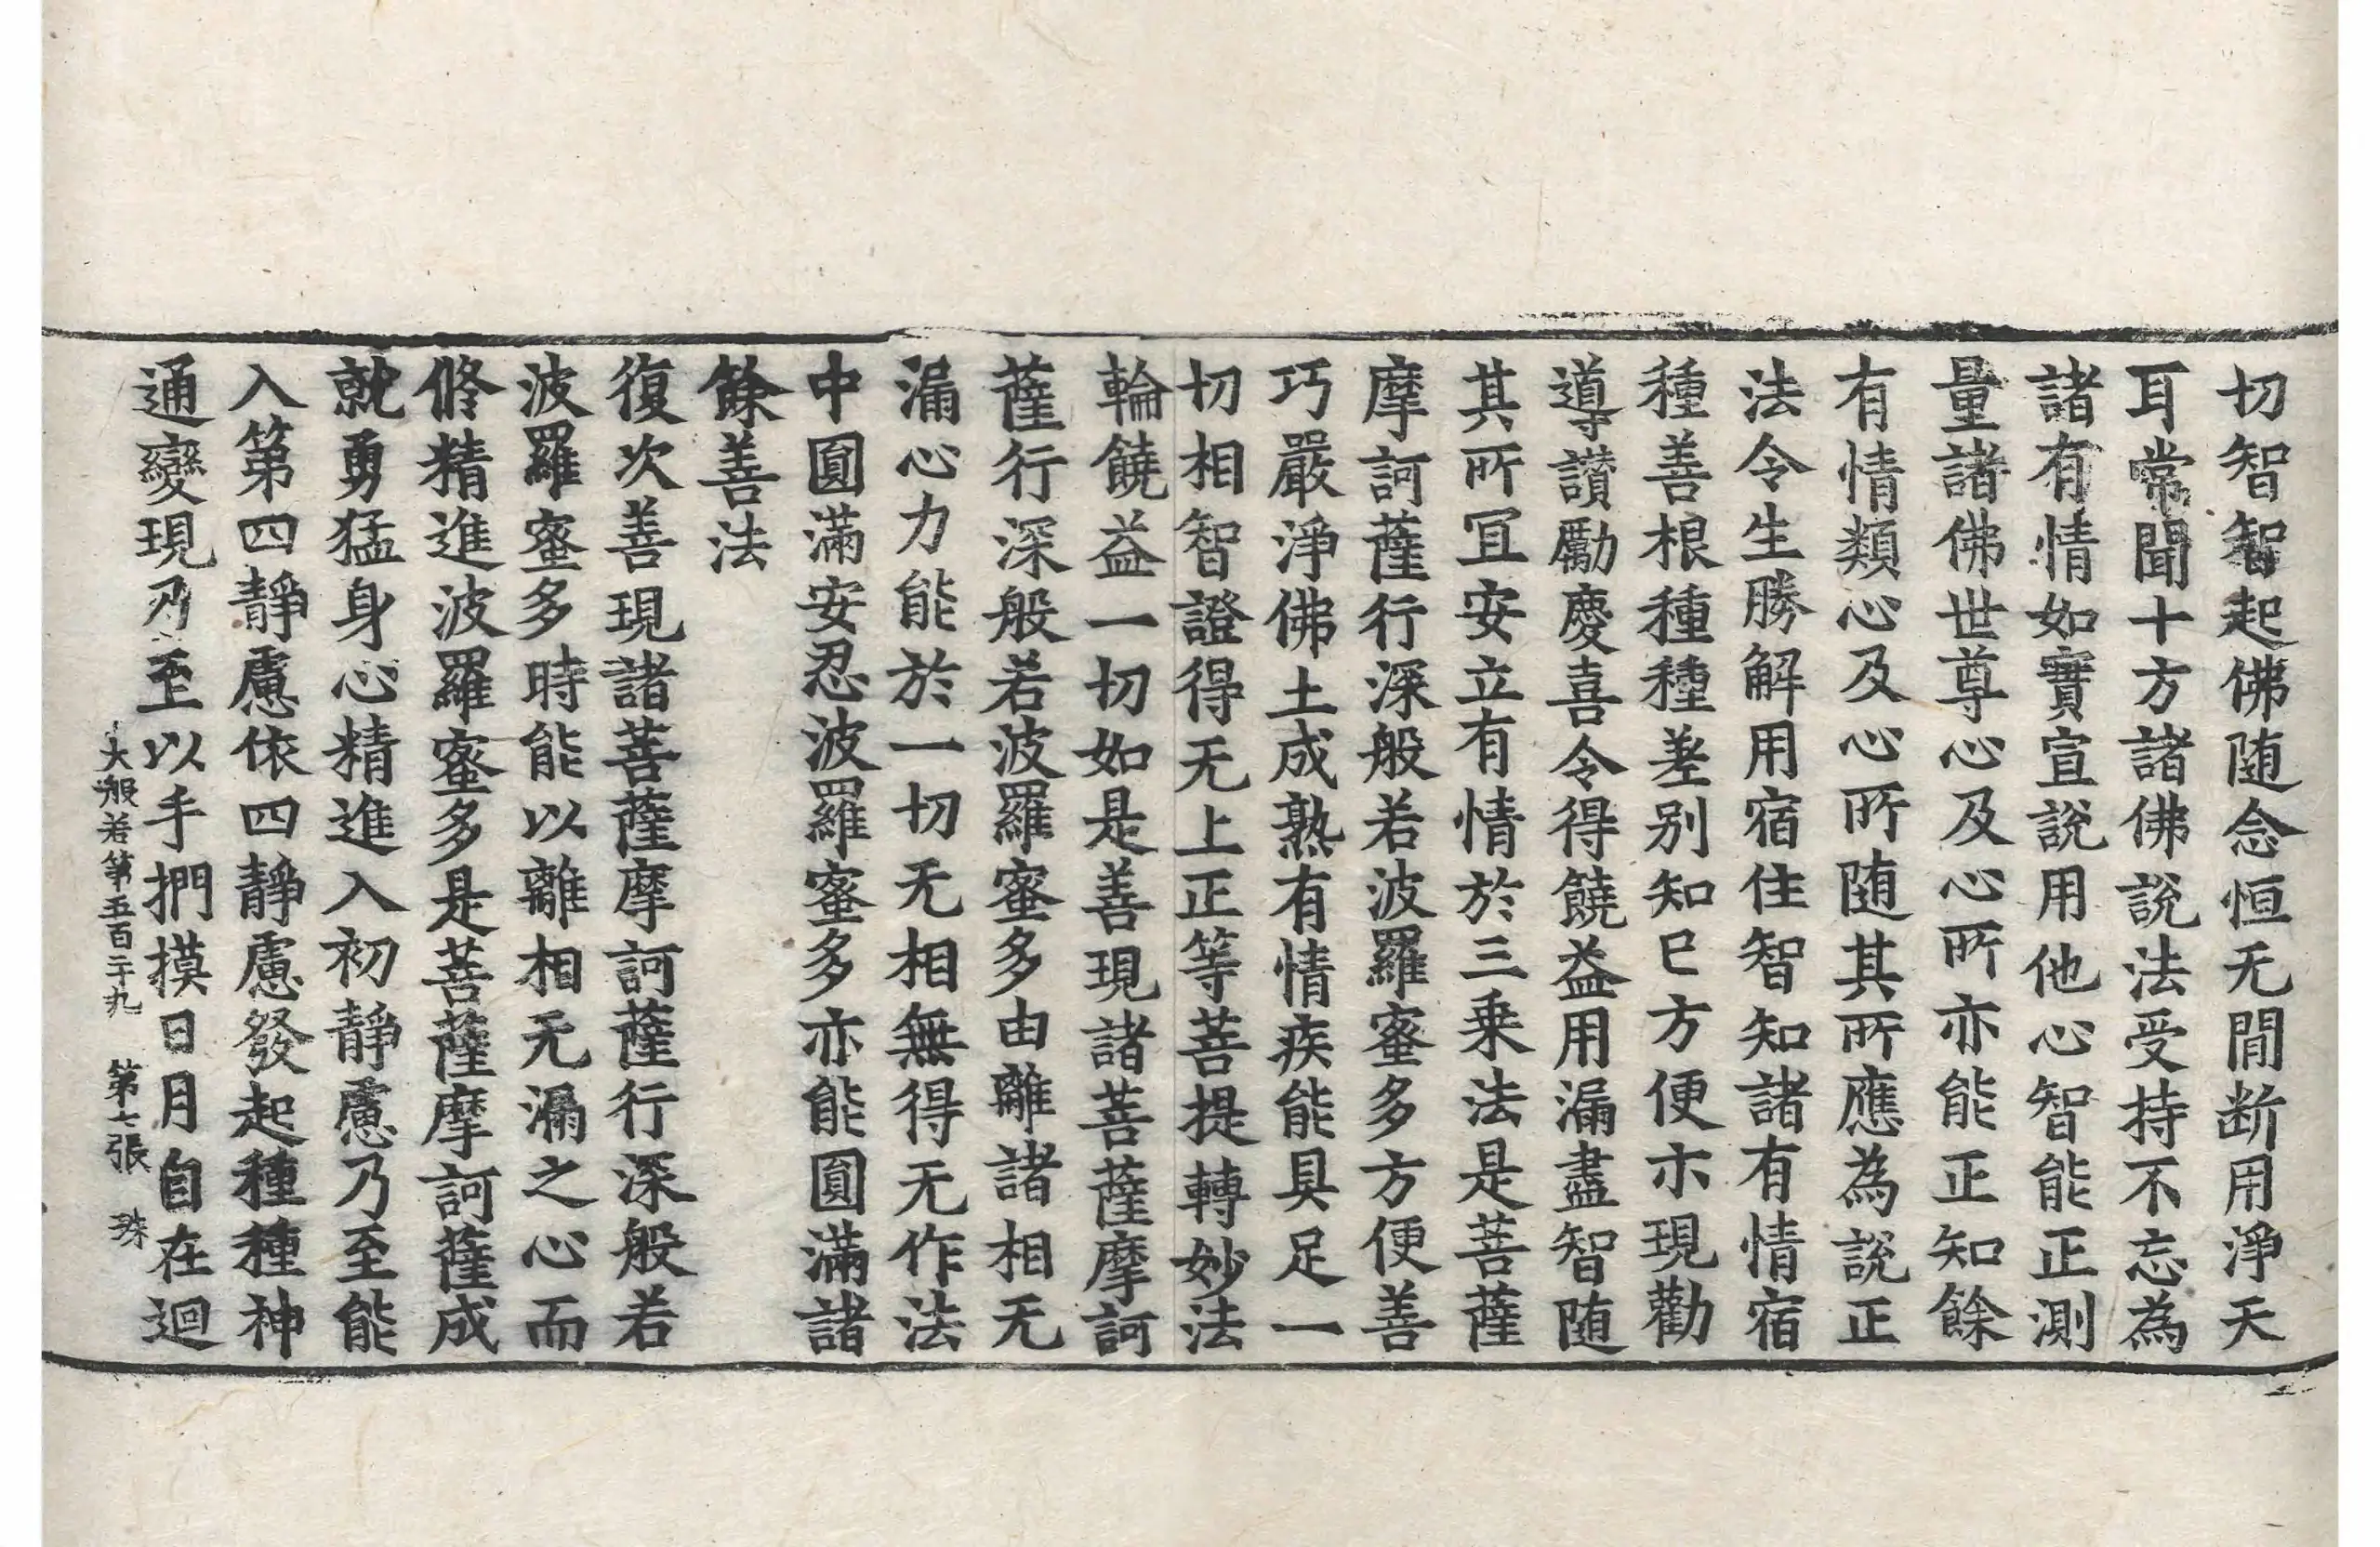 切智智起佛随念恒无閒断用淨天
耳常聞十方諸佛說法受持不忘為
諸有情如實宣說用他心智能正測
量諸佛世尊心及心所亦能正知餘
有情類心及心所随其所應為說正
法令生勝解用宿住智知諸有情宿
種善根種種差别知已方便示現勸
導讃勵慶喜令得饒益用漏盡智随
其所冝安立有情於三乗法是菩薩
摩訶薩行深般若波羅蜜多方便善
巧嚴淨佛土成熟有情疾能具足一
切相智證得无上正等菩提轉妙法
輪饒益一切如是善現諸菩薩摩訶
薩行深般若波羅蜜多由離諸相无
漏心力能於一切无相無得无作法
中圓滿安忍波羅蜜多亦能圓滿諸
餘善法
復次善現諸菩薩摩訶薩行深般若
波羅蜜多時能以離相无漏之心而
修精進波羅蜜多是菩薩摩訶薩成
就勇猛身心精進入初靜慮乃至能
入第四靜慮依四靜慮發起種種神
通變現乃至以手捫摸日月自在迴
大般若第五百二十九 第七張 珠